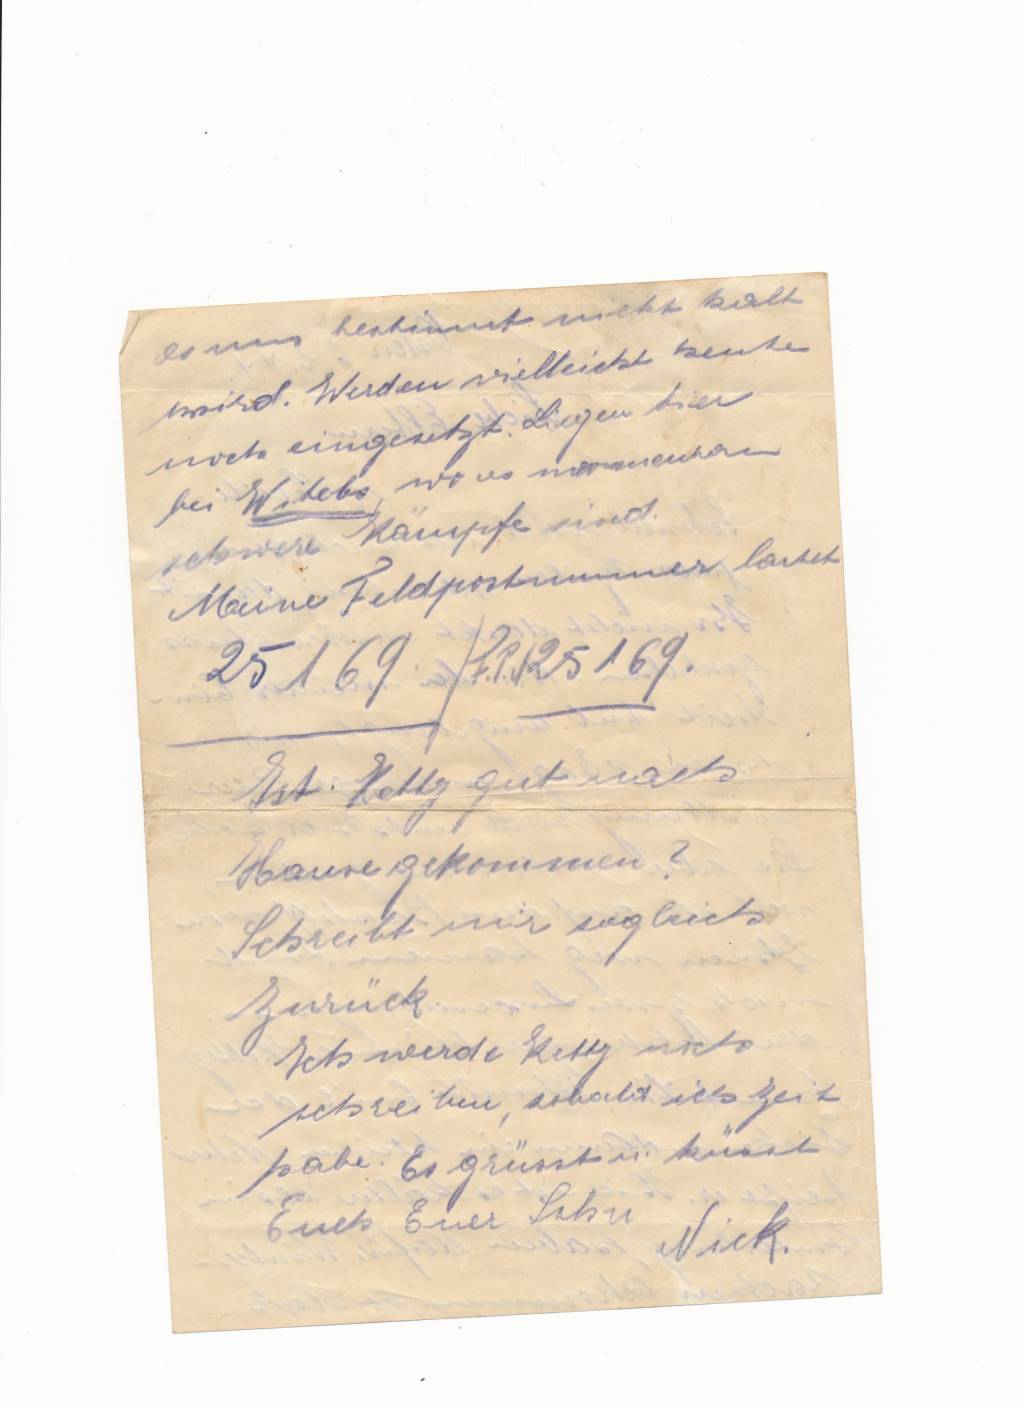 es uns bestimmt nicht kalt
wird. Werden vielleicht heute
noch eingesetzt. Liegen hier
bei Witebs, wo es momentan
schwere Kämpfe sind.
Meine Feldpostnummer lautet
25169 / F.P.N 25169.
Ist Ketty gut nach
Hause gekommen?
Schreibt mir sogleich
zurück.
Ich werde Ketty noch
schreiben, sobald ich Zeit
habe. Es grüsst u. küsst
Euch Euer Sohn
Nick.